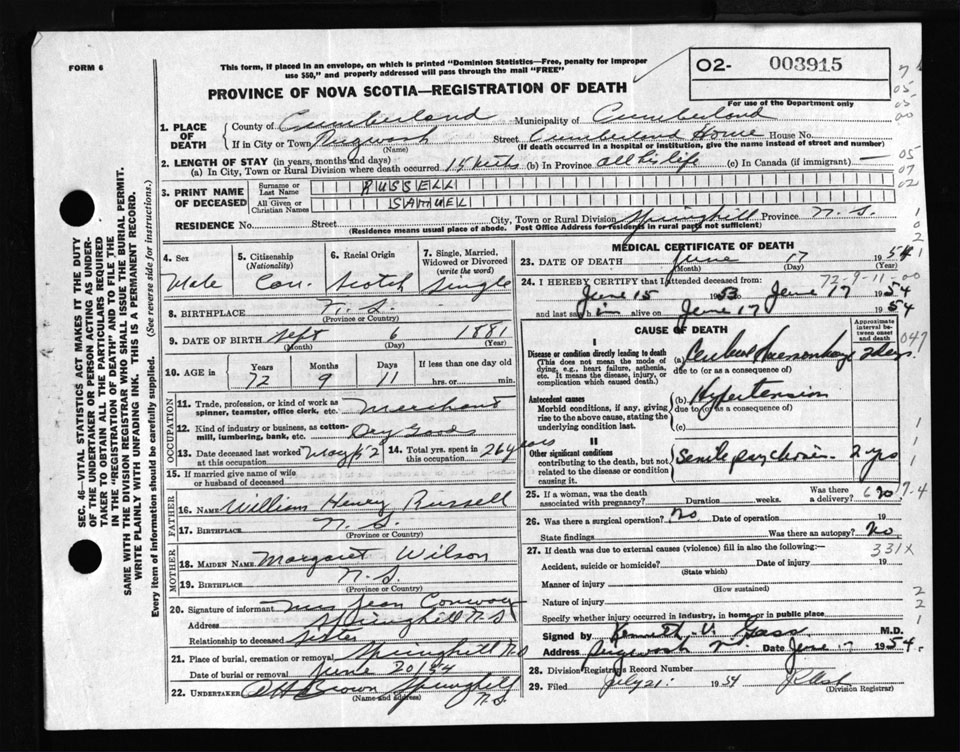 FORM 6
This form, if placed in an envelope, on which is printed "Dominion Statistics—Free, penalty for improper
use $50," and properly addressed will pass through the mail "FREE"
O2- 003915
For use of the Department only
PROVINCE OF NOVA SCOTIA—REGISTRATION OF DEATH
1. PLACE OF DEATH County of Cumberland Municipality of Cumberland
If in City or Town Pugwash Street Cumberland Home House No.
(Name) (If death occurred in a hospital or institution, give the name instead of street and number)
2. LENGTH OF STAY (in years, months and days)
(a) In City, Town or Rural Division where death occurred (b) In Province all his life (c) In Canada (if immigrant) —
3. PRINT NAME OF DECEASED Surname or Last Name RUSSELL
All Given or Christian Names SAMUEL
RESIDENCE No. Street City, Town or Rural Division Springhill Province N.S.
(Residence means usual place of abode. Post Office Address for residents in rural parts not sufficient)
4. Sex Male
5. Citizenship (Nationality) Can.
6. Racial Origin Scotch
7. Single, Married, Widowed or Divorced (write the word) Single
8. BIRTHPLACE N.S.
(Province or Country)
9. DATE OF BIRTH Sept 6 1881
(Month) (Day) (Year)
10. AGE in Years 72 Months 9 Days 11 If less than one day old hrs. or min.
OCCUPATION
11. Trade, profession, or kind of work as spinner, teamster, office clerk, etc. Merchant
12. Kind of industry or business, as cotton-mill, lumbering, bank, etc. Dry Goods
13. Date deceased last worked at this occupation 14. Total yrs. spent in this occupation years
15. If married give name of wife or husband of deceased
FATHER
16. NAME William Henry Russell
17. BIRTHPLACE N.S.
(Province or Country)
MOTHER
18. MAIDEN NAME Margaret Wilson
19. BIRTHPLACE N.S.
(Province or Country)
20. Signature of informant Mrs Jean Conway
Address Springhill N.S
Relationship to deceased Sister
21. Place of burial, cremation or removal Springhill N.S
Date of burial or removal June 20/54
22. UNDERTAKER Brown Springhill N.S.
(Name and address)
MEDICAL CERTIFICATE OF DEATH
23. DATE OF DEATH June 17 1954
(Month) (Day) (Year)
72-9-11-00
24. I HEREBY CERTIFY that I attended deceased from:
June 15 1953 to June 17 1954
and last saw him alive on June 17 1954
CAUSE OF DEATH
Approximate interval between onset and death
I
Disease or condition directly leading to death
(This does not mean the mode of dying, e.g., heart failure, asthenia, etc. It means the disease, injury, or complication which caused death.)
(a) Cerebral Haemorrhage 2 days
due to (or as a consequence of)
Antecedent causes
Morbid conditions, if any, giving rise to the above cause, stating the underlying condition last.
(b) Hypertension
due to (or as a consequence of)
(c)
II
Other significant conditions
contributing to the death, but not related to the disease or condition causing it.
Senile psychosis 2 yrs
25. If a woman, was the death associated with pregnancy? Duration weeks. Was there a delivery? no
26. Was there a surgical operation? No Date of operation 19
State findings Was there an autopsy? No.
27. If death was due to external causes (violence) fill in also the following:— 331X
Accident, suicide or homicide? Date of injury 19
(State which)
Manner of injury
(How sustained)
Nature of injury
Specify whether injury occurred in industry, in home or in public place
Signed by Kenneth V. Gass M.D.
Address Pugwash N.S. Date June 17 1954.
28. Division Registrar's Record Number
29. Filed July 21 1954
(Division Registrar)
SEC. 46—VITAL STATISTICS ACT MAKES IT THE DUTY
OF THE UNDERTAKER OR PERSON ACTING AS UNDER-
TAKER TO OBTAIN ALL THE PARTICULARS REQUIRED
IN THE "REGISTRATION OF DEATH" AND TO FILE THE
SAME WITH THE DIVISION REGISTRAR WHO SHALL ISSUE THE BURIAL PERMIT.
WRITE PLAINLY WITH UNFADING INK. THIS IS A PERMANENT RECORD.
Every item of information should be carefully supplied. (See reverse side for instructions.)